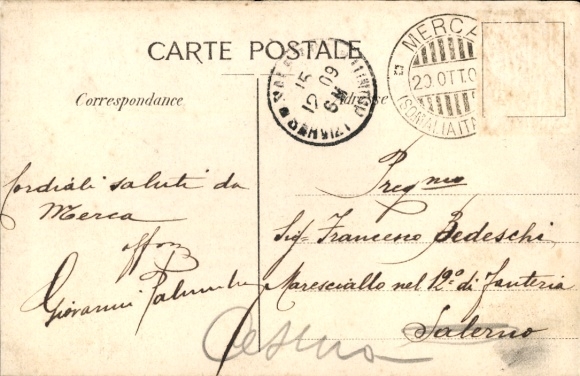 CARTE POSTALE
Correspondance
Adresse
MERCA
20 OTT.0
(SOMALIA ITA
15
10 09
6 M
SERVIZI
Cordiali saluti da
Merca
affmo
Giovanni Palumbo
Pregmo
Sigr Francesco Bedeschi
Maresciallo nel 12º di Fanteria
Salerno
Cesena